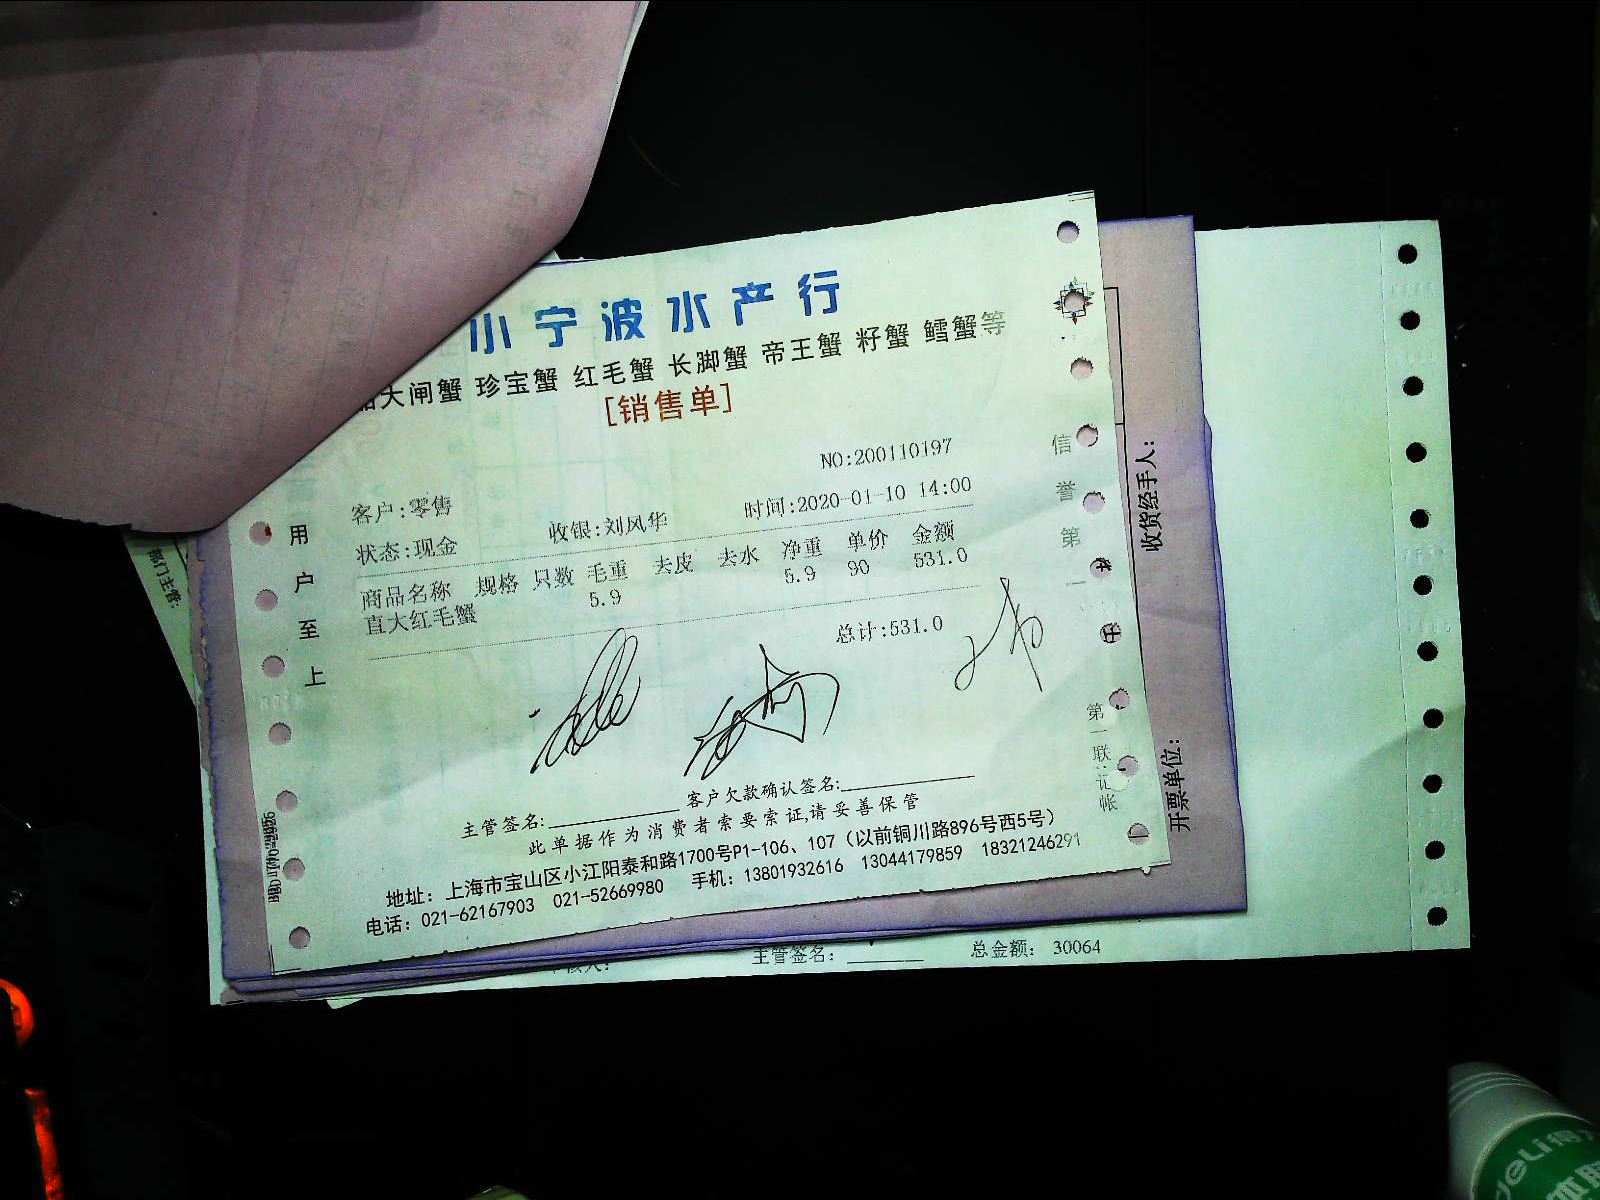 小宁波水产行
大闸蟹 珍宝蟹 红毛蟹 长脚蟹 帝王蟹 籽蟹 鳕蟹等
[销售单]
NO:200110197
客户:零售
收银:刘风华
时间:2020-01-10 14:00
状态:现金
商品名称 规格 只数 毛重 去皮 去水 净重 单价 金额
直大红毛蟹 5.9 5.9 90 531.0
总计:531.0
用户至上
信誉第一
第一联:记帐
主管签名:
客户欠款确认签名:
此单据作为消费者索要索证,请妥善保管
地址：上海市宝山区小江阳泰和路1700号P1-106、107（以前铜川路896号西5号）
电话：021-62167903 021-52669980 手机：13801932616 13044179859 18321246291
收货经手人:
开票单位:
部门主管:
主管签名:
总金额: 30064
deli